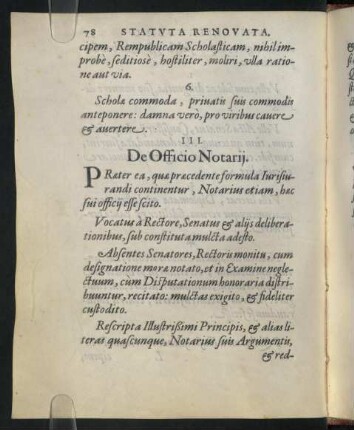 78 STATVTA RENOVATA.
cipem, Rempublicam Scholasticam, nihil im-
probè, seditiosè, hostiliter, moliri, vlla ratio-
ne aut via.
6.
Scholæ commoda, priuatis suis commodis
anteponere: damna verò, pro viribus cauere
& auertere.
III.
De Officio Notarij.
PRæter ea, quæ præcedente formula Iurisiu-
randi continentur, Notarius etiam, hæc
sui officij esse scito.
Vocatus à Rectore, Senatus & alijs delibera-
tionibus, sub constituta mulcta adesto.
Absentes Senatores, Rectoris monitu, cum
designatione moræ notato, et in Examine negle-
ctuum, cùm Disputationum honoraria distri-
buuntur, recitato: mulctas exigito, & fideliter
custodito.
Rescripta Illustrißimi Principis, & alias li-
teras quascunque, Notarius suis Argumentis,
& red-